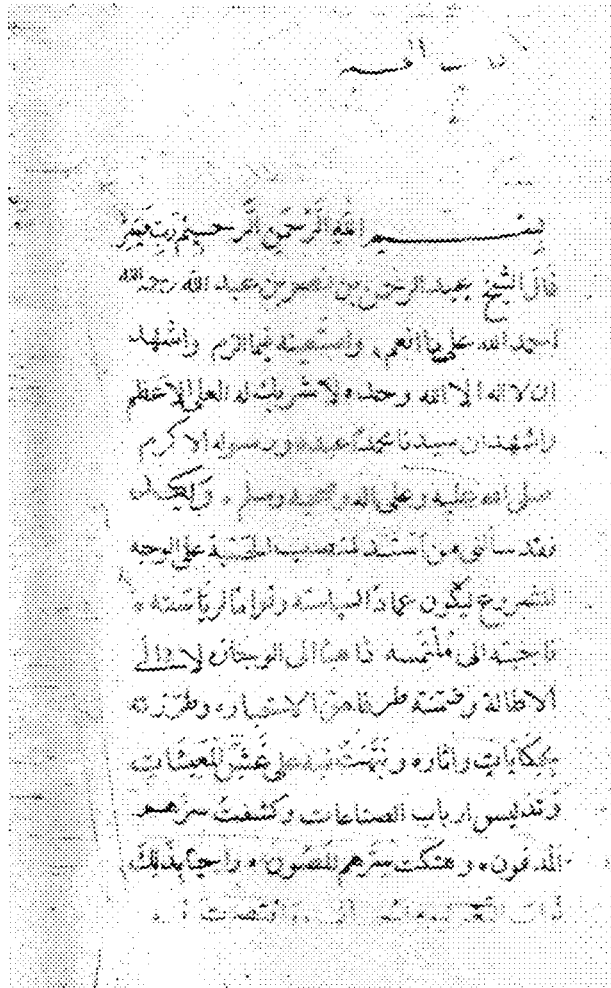 بسم الله الرحمن الرحيم رب
قال الشيخ عبد الرحمن بن نصر بن عبد الله رحمه الله
احمد الله على ما انعم، واستعينه فيما الزم واشهد
ان لا اله الا الله وحده لا شريك له العلي الاعظم
واشهد ان سيدنا محمدا عبده ورسوله الاكرم
صلى الله عليه وعلى اله وصحبه وسلم.
وقد سألني من استند لمنصب الحسبة على الوجه
المشروع ليكون عمادا لسياسته وقواما لرياسته.
فاجبته الى ملتمسه ذاهبا الى الوجازه لا الى
الاطالة وضمنته طرفا من الاخبار، وطرزته
بحكايات واثار، ونبهت فيه على غش المعيشات
وتدليس ارباب الصناعات وكشفت سرهم
المدفون، وهتكت سترهم المصون، راجيا بذلك